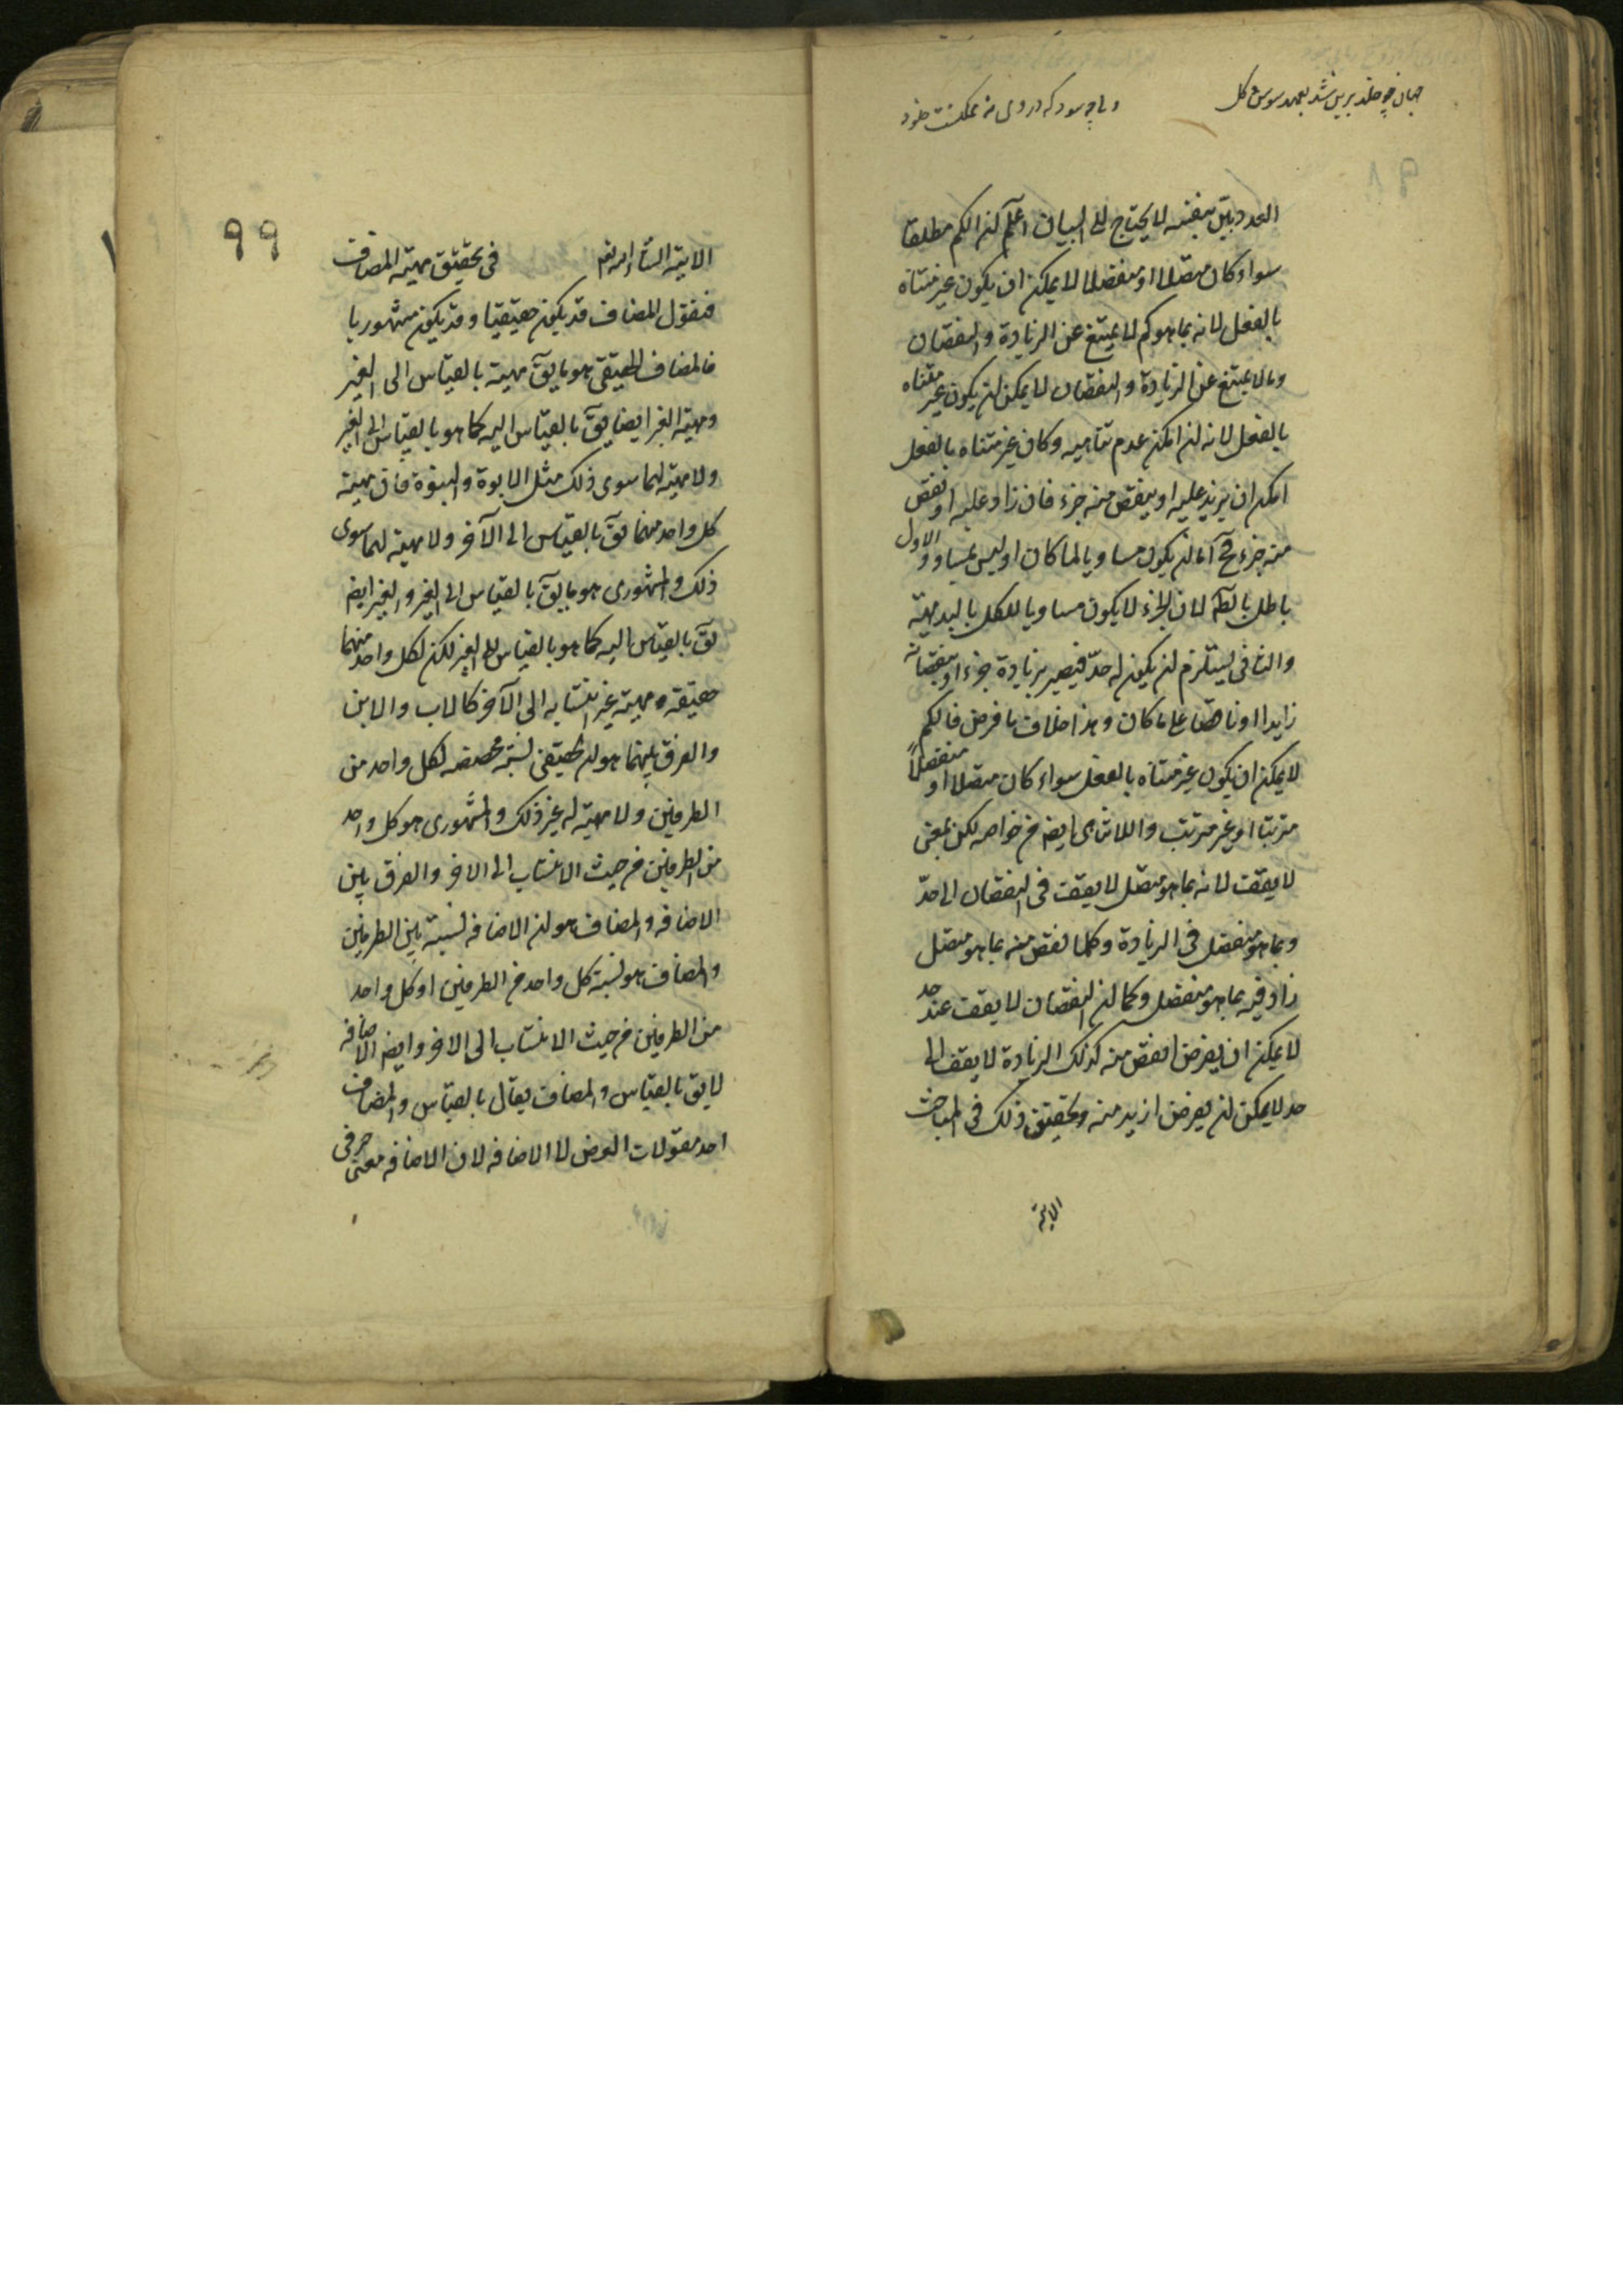 جهان چو خلد برین شد بعهد سوسن و گل
ولی چه سود که در وی نه ممکنست خلود
العدد بیّن بنفسه لا یحتاج الی البیان اعلم ان الکم مطلقا
سواء کان متصلا او منفصلا لا یمکن ان یکون غیر متناه
بالفعل لانه بما هو کم لا یمتنع عن الزیادة و النقصان
وما لا یمتنع عن الزیادة و النقصان لا یمکن ان یکون غیر متناه
بالفعل لانه ان امکن عدم تناهیه وکان غیر متناه بالفعل
امکن ان یزید علیه او ینقص منه جزء فان زاد علیه او نقص
منه جزء فح اما ان یکون مساویا لما کان او لیس بمساو و الاول
باطل لان الجزء لا یکون مساویا للکل بالبدیهة
والثانی یستلزم ان یکون له حدّ فیصیر بزیادة جزء او بنقصانه
زایدا او ناقصا علی ما کان و هذا خلاف ما فرض فالکم
لا یمکن ان یکون غیر متناه بالفعل سواء کان متصلا او منفصلاً
مترتبا او غیر مترتب و اللاتناهی ایضا من خواصه لکن بمعنی
لا یقف لانه بما هو متصل لا یقف فی النقصان الی حدّ
وبما هو منفصل فی الزیادة وکلما نقص منه بما هو متصل
زاد فیه بما هو منفصل وکما ان النقصان لا یقف عند حد
لا یمکن ان یفرض انقص منه کذلک الزیادة لا یقف الی
حد لا یمکن ان یفرض ازید منه وتحقیق ذلک فی المباحث
الاتیة
۹۹
الاتیة انشاء الله تعم فی تحقیق مهیّة المضاف
فنقول المضاف قد یکون حقیقیا و قد یکون مشهوریا
فالمضاف الحقیقی هو ما یقٓ مهیته بالقیاس الی الغیر
ومهیة الغیر ایضا یقٓ بالقیاس الیه کما هو بالقیاس الی الغیر
ولا مهیة لهما سوی ذلک مثل الابوة و البنوة فان مهیة
کل واحد منهما یقٓ بالقیاس الی الآخر ولا مهیة لهما سوی
ذلک و المشهوری هو ما یقٓ بالقیاس الی الغیر و الغیر ایضا
یقٓ بالقیاس الیه کما هو بالقیاس الی الغیر لکن لکل واحد منهما
حقیقة و مهیة غیر انتسابه الی الآخر کالاب والابن
والفرق بینهما هو ان الحقیقی نسبة محضة لکل واحد من
الطرفین ولا مهیة له غیر ذلک و المشهوری هو کل واحد
من الطرفین من حیث الانتساب الی الاخر والفرق بین
الاضافه و المضاف هو ان الاضافه نسبة بین الطرفین
و المضاف هو نسبة کل واحد من الطرفین او کل واحد
من الطرفین من حیث الانتساب الی الاخر وایضا الاضافه
لا یق بالقیاس و المضاف یقال بالقیاس و المضاف
احد مقولات العرض لا الاضافه لان الاضافه معنی حرفی